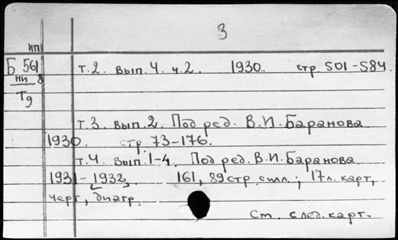 3
ИП
Б 561
НИ 8
Т9
т.2. вып. 4. ч.2. 1930. стр. 501-584.
т.3. вып. 2. Под ред. В.И. Баранова
1930. стр 73-176.
т.4. вып. 1-4. Под ред. В.И. Баранова
1931-1932. 161, 89 стр. илл.; 17 л. карт,
черт, диагр.
См. след. карт.